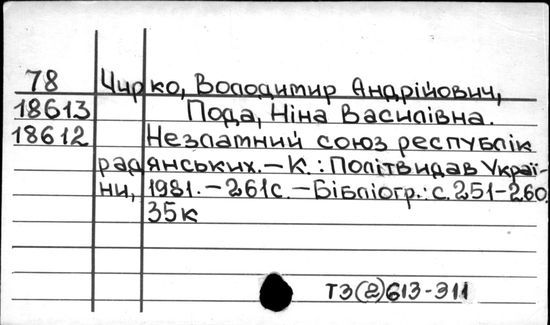 78 Чирко, Володимир Андрійович,
18613 Пода, Ніна Василівна.
18612 Незламний союз республік
радянських. – К. : Політвидав Украї-
ни, 1981. – 261с. – Бібліогр.: с. 251-260.
35к
ТЗ(2)613-311